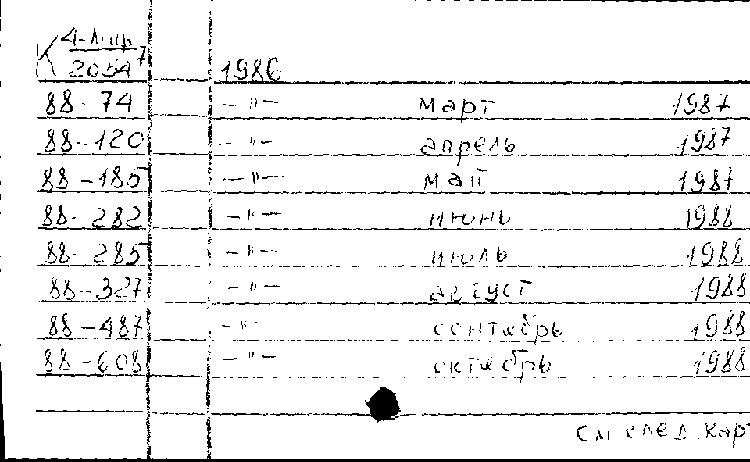 2054⁷ 1986
88-74 -〃- март 1987
88-120 -〃- апрель 1987
88-185 -〃- май 1987
88-282 -〃- июнь 1988
88-285 -〃- июль 1988
88-327 -〃- август 1988
88-487 -〃- сентябрь 1988
88-608 -〃- октябрь 1988
см след. кар